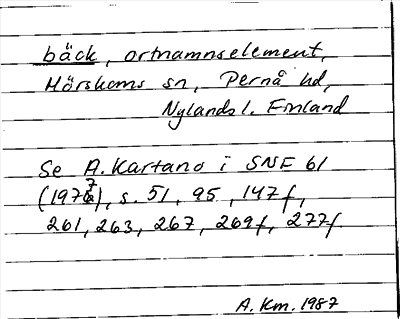 bäck, ortnamnselement,
Mörskoms sn, Pernå hd,
Nylands l. Finland
Se A. Kartano i SNF 61
(1977), s. 51, 95, 147f,
261, 263, 267, 269f, 277f.
A. Km. 1987